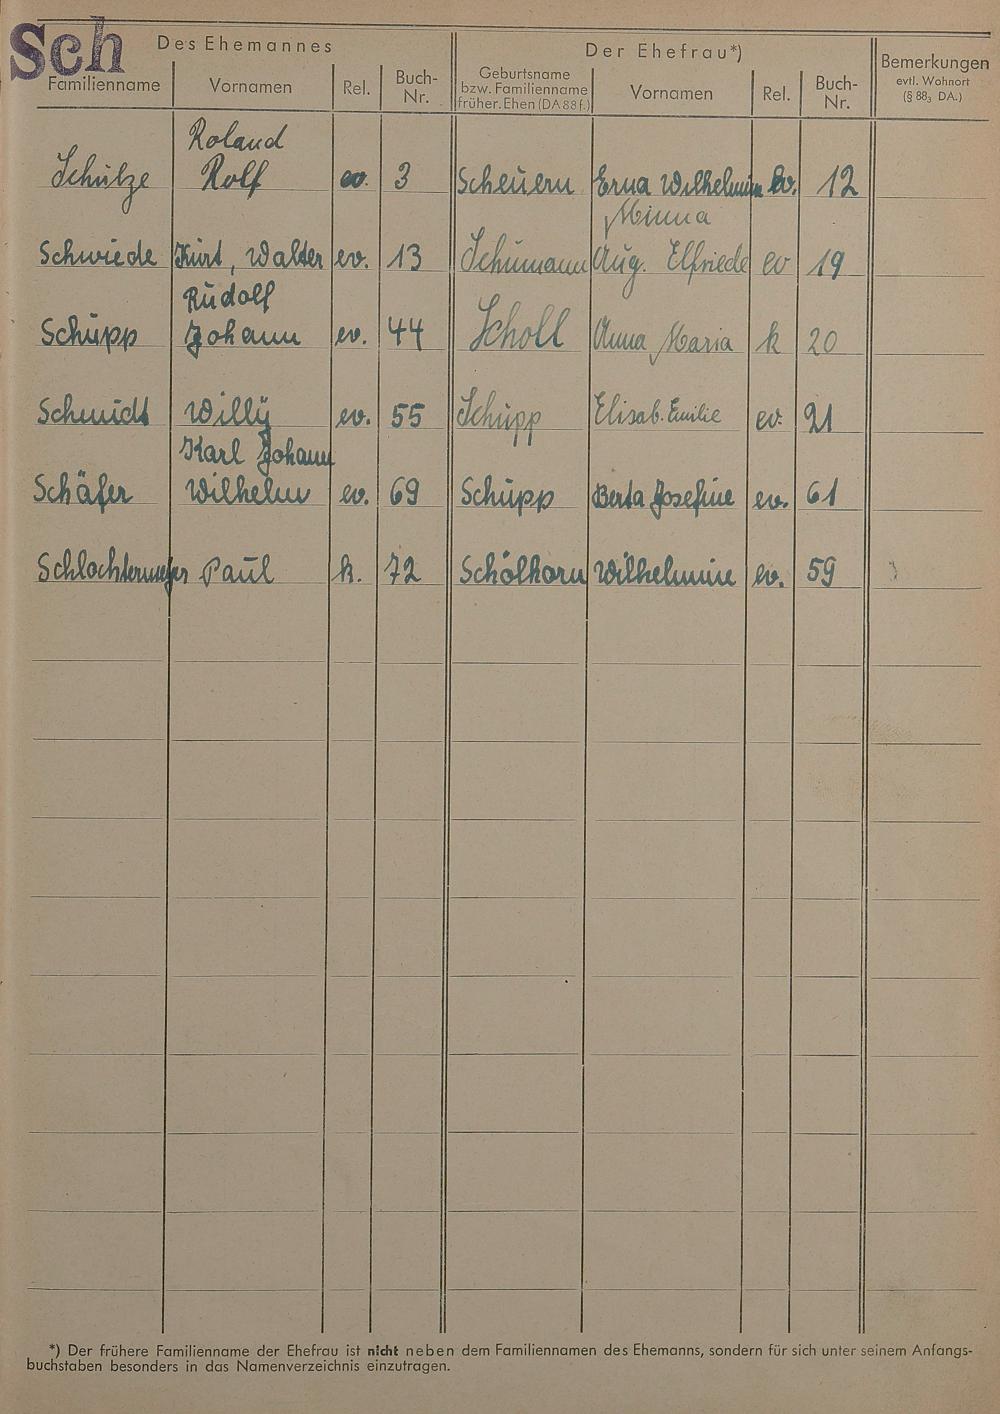 Sch
Des Ehemannes Der Ehefrau*)
Familienname Vornamen Rel. Buch-Nr. Geburtsname bzw. Familienname früher. Ehen (DA 88 f.) Vornamen Rel. Buch-Nr. Bemerkungen evtl. Wohnort (§ 88₃ DA.)
Roland
Schulze Rolf ev. 3 Scheuern Erna Wilhelmin ev. 12
Minna
Schwiede Kurt, Walter ev. 13 Schumann Aug. Elfriede ev 19
Rudolf
Schupp Johann ev. 44 Scholl Anna Maria k 20
Schmidt Willy ev. 55 Schupp Elisab. Emilie ev. 21
Karl Johann
Schäfer Wilhelm ev. 69 Schupp Berta Josefine ev. 61
Schlochtermeyer Paul k. 72 Schölkorn Wilhelmine ev. 59
*) Der frühere Familienname der Ehefrau ist nicht neben dem Familiennamen des Ehemanns, sondern für sich unter seinem Anfangs-
buchstaben besonders in das Namenverzeichnis einzutragen.